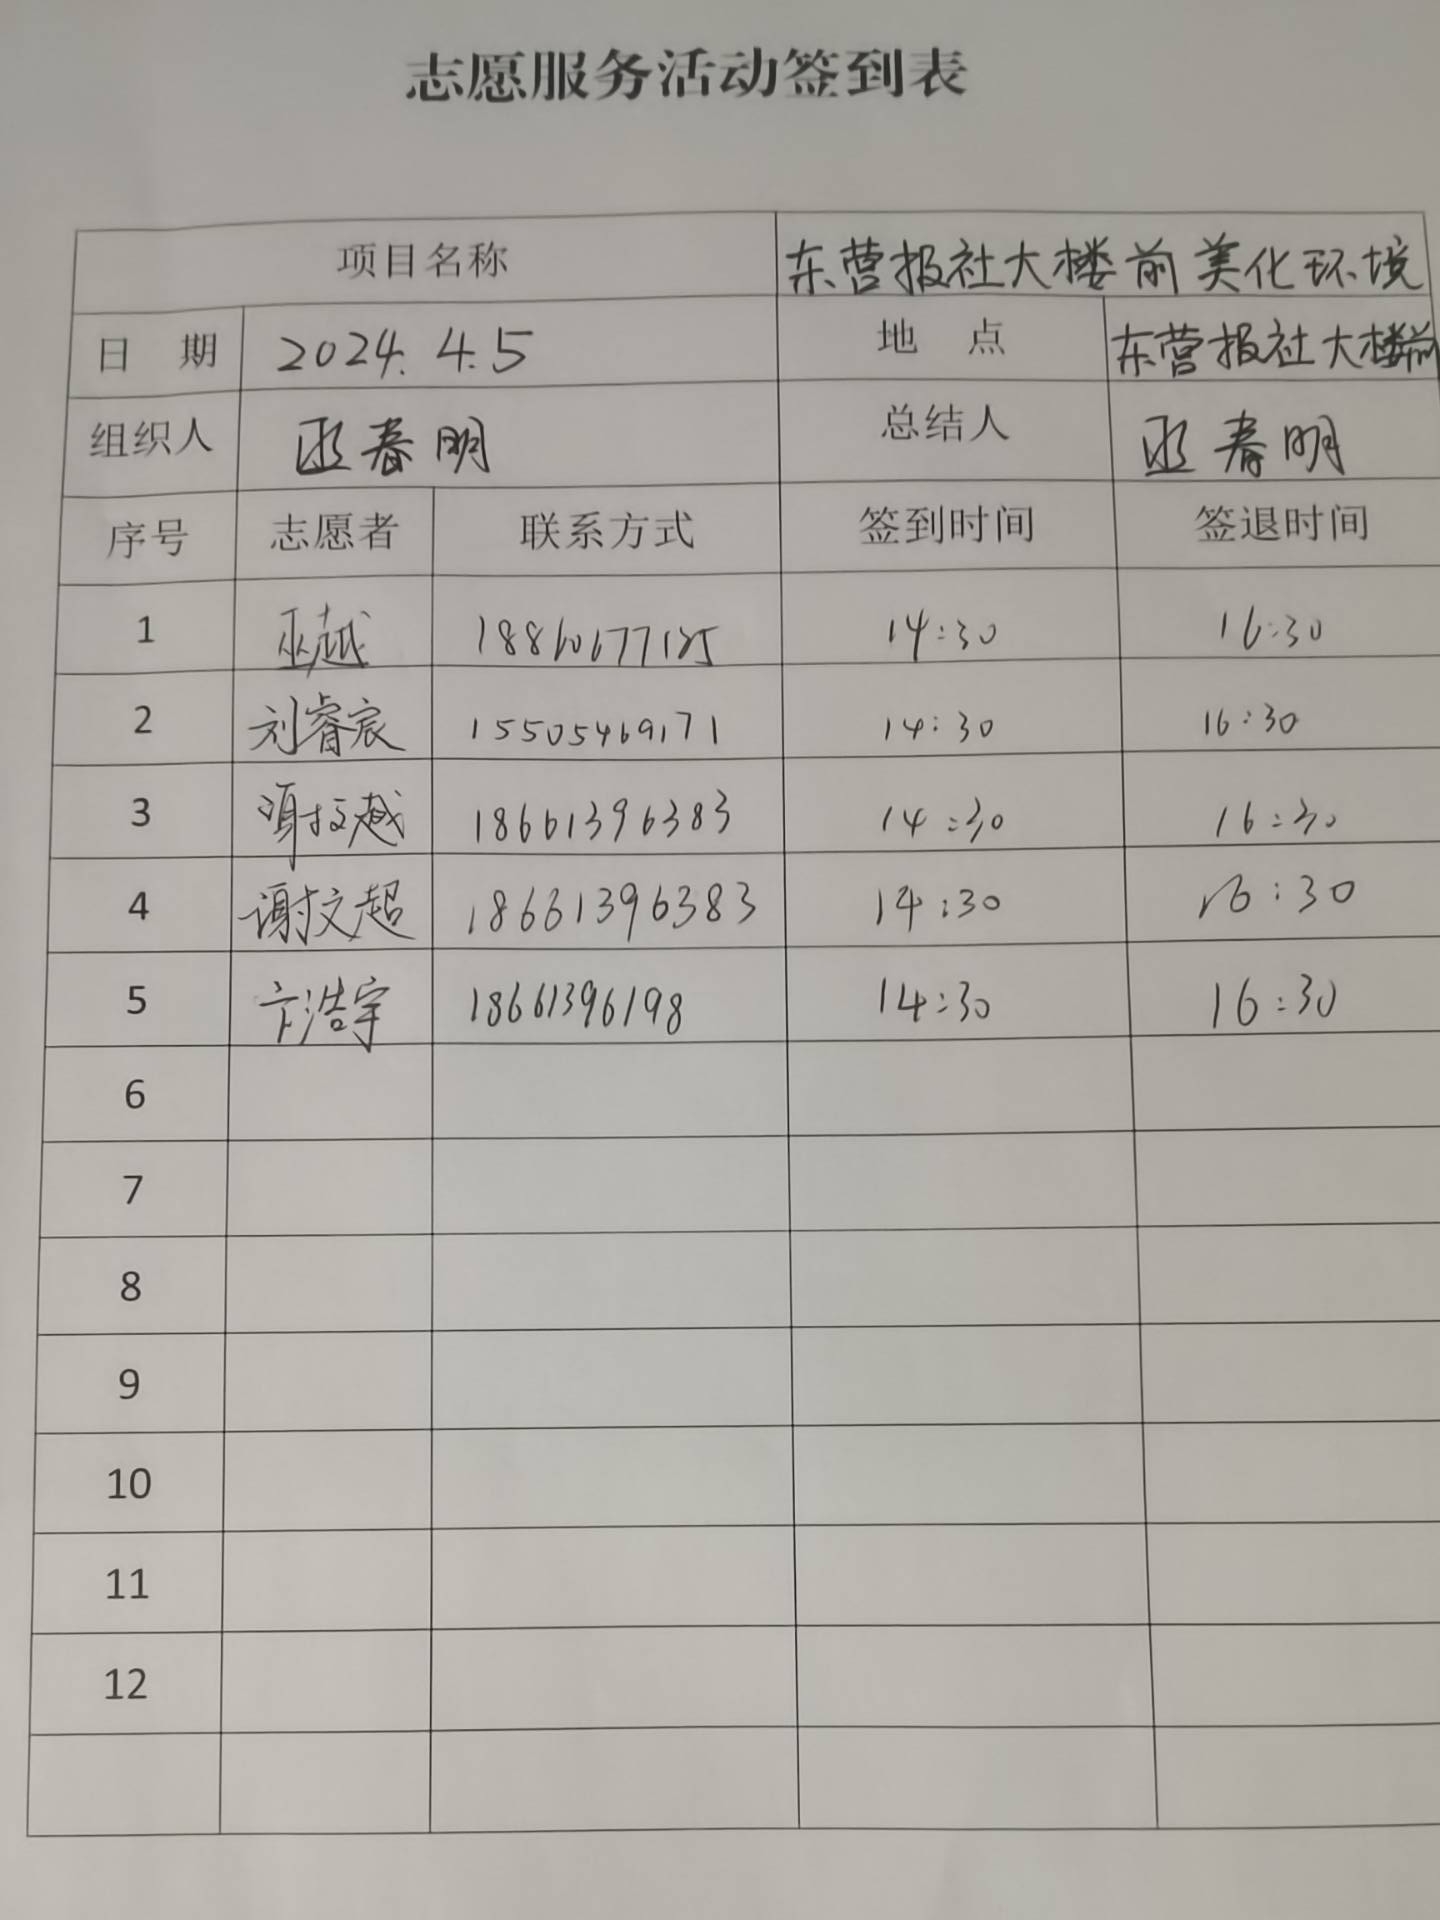 志愿服务活动签到表
项目名称 东营报社大楼前美化环境
日 期 2024.4.5 地 点 东营报社大楼前
组织人 巫春明 总结人 巫春明
序号 志愿者 联系方式 签到时间 签退时间
1 巫越 14:30 16:30
2 刘睿宸 15505469171 14:30 16:30
3 谢文越 18661396383 14:30 16:30
4 谢文超 18661396383 14:30 16:30
5 卞浩宇 18661396198 14:30 16:30
6
7
8
9
10
11
12